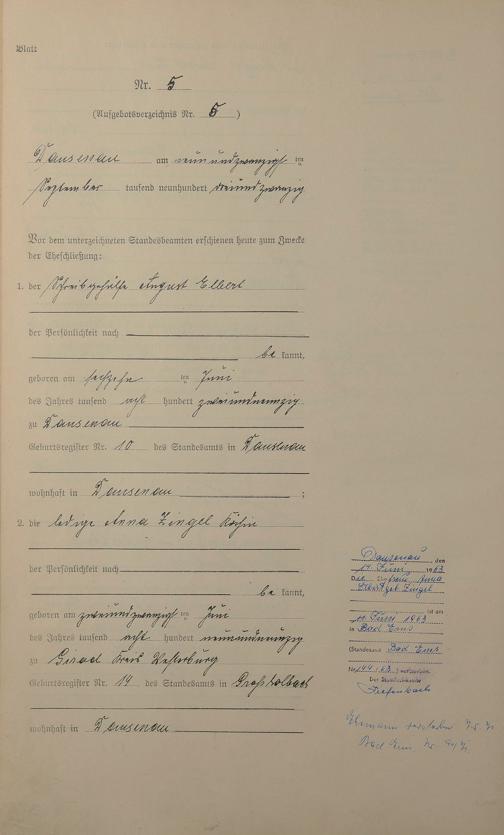 Blatt
Nr. 5
(Aufgebotsverzeichnis Nr. 5 )
Dausenau am neunundzwanzigsten
September tausend neunhundert dreiundzwanzig
Vor dem unterzeichneten Standesbeamten erschienen heute zum Zwecke
der Eheschließung:
1. der Schreibgehülfe August Elbert
der Persönlichkeit nach
be kannt,
geboren am sechzehn ten Juni
des Jahres tausend acht hundert zweiundneunzig
zu Dausenau
Geburtsregister Nr. 10 des Standesamts in Dausenau
wohnhaft in Dausenau ;
2. die ledige Anna Zingel Köchin
der Persönlichkeit nach
be kannt,
geboren am zweiundzwanzigsten Juni
des Jahres tausend acht hundert neunundneunzig
zu Girod Kreis Westerburg
Geburtsregister Nr. 14 des Standesamts in Großholbach
wohnhaft in Dausenau
Dausenau den
14. Juni 1963
Anna
Elbert geb. Zingel
ist am
Juni 1963
in Bad Ems
(Standesamt Bad Ems
Nr. 144/63) verstorben.
Der Standesbeamte
Tiefenbach
Ehemann verstorben
Bad Ems Nr.